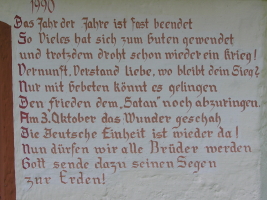 1990
Das Jahr der Jahre ist fast beendet
So Vieles hat sich zum Guten gewendet
und trotzdem droht schon wieder ein Krieg!
Vernunft, Verstand Liebe, wo bleibt dein Sieg?
Nur mit Gebeten könnt es gelingen
Den Frieden dem „Satan" noch abzuringen.
Am 3. Oktober das Wunder geschah
Die Deutsche Einheit ist wieder da!
Nun dürfen wir alle Brüder werden
Gott sende dazu seinen Segen
zur Erden!